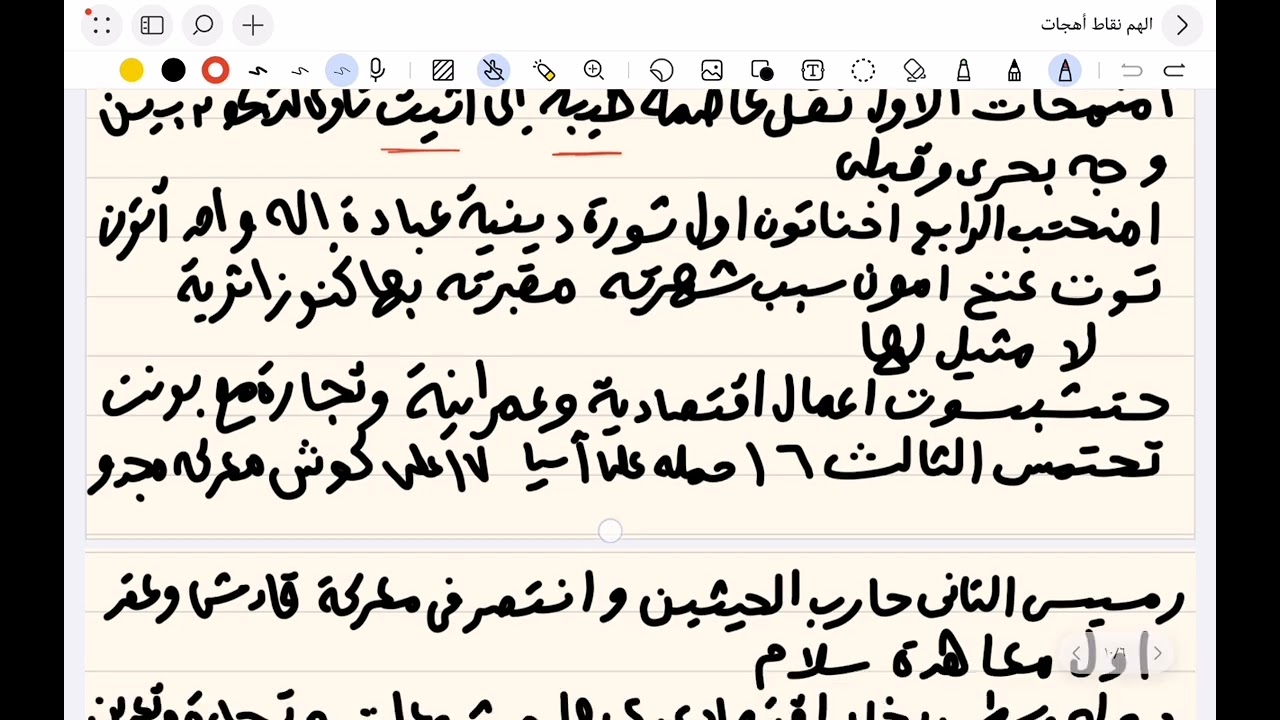 الهم نقاط أهجات
امنمحات الاول نقل عاصمة طيبة إلى اثيت تاوى للتحكم بين
وجه بحرى وقبلى
امنحتب الرابع اخناتون اول ثورة دينية عبادة إله واحد أتون
توت عنخ امون سبب شهرته مقبرته بها كنوز اثرية
لا مثيل لها
حتشبسوت اعمال اقتصادية وعمرانية وتجارة مع بونت
تحتمس الثالث ١٦ حمله على أسيا ١٧ على كوش معركه مجدو
رمسيس الثانى حارب الحيثين وانتصر فى معركة قادش وعقد
اول معاهدة سلام
١٠/٦